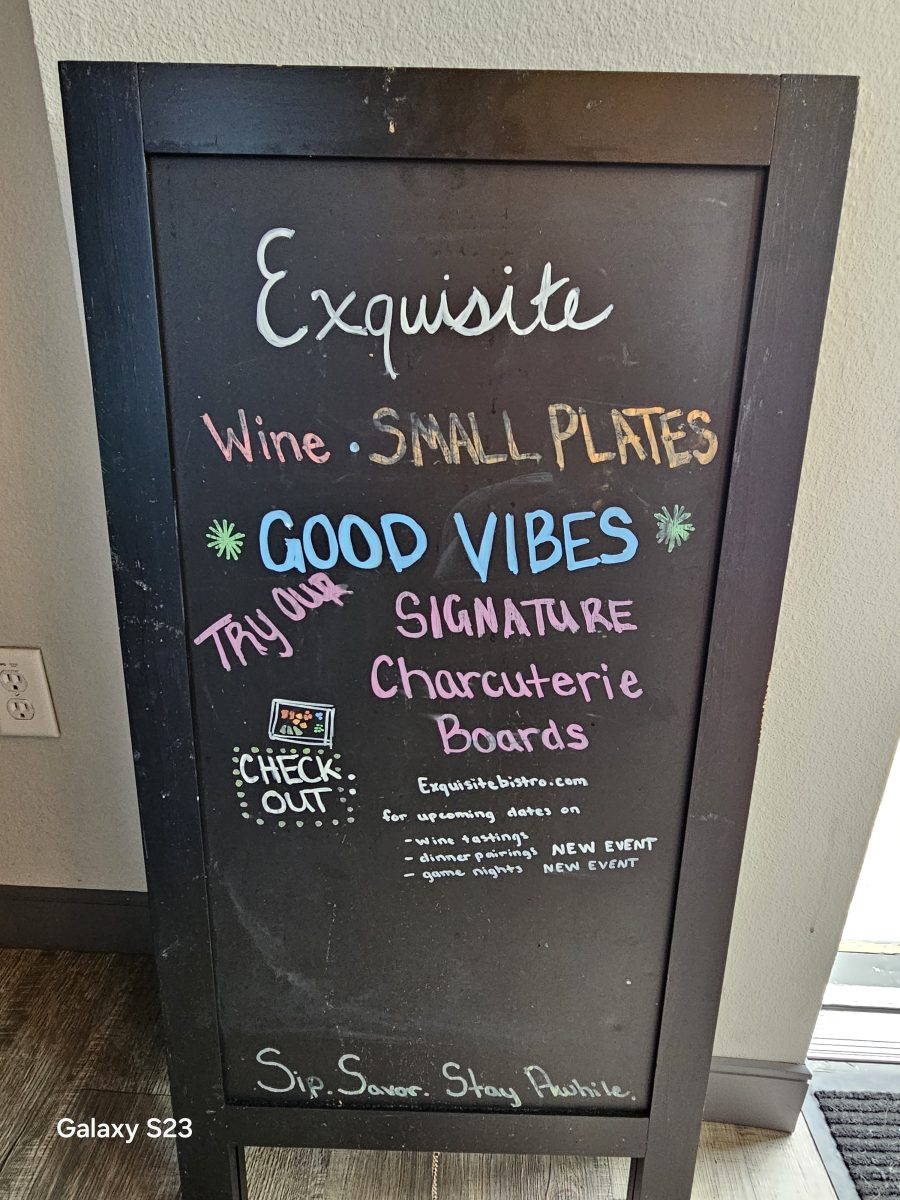 Exquisite
Wine • SMALL PLATES
GOOD VIBES
TRY OUR
SIGNATURE
Charcuterie
Boards
CHECK
OUT
Exquisitebistro.com
for upcoming dates on
- wine tastings
- dinner pairings NEW EVENT
- game nights NEW EVENT
Sip. Savor. Stay Awhile.
Galaxy S23